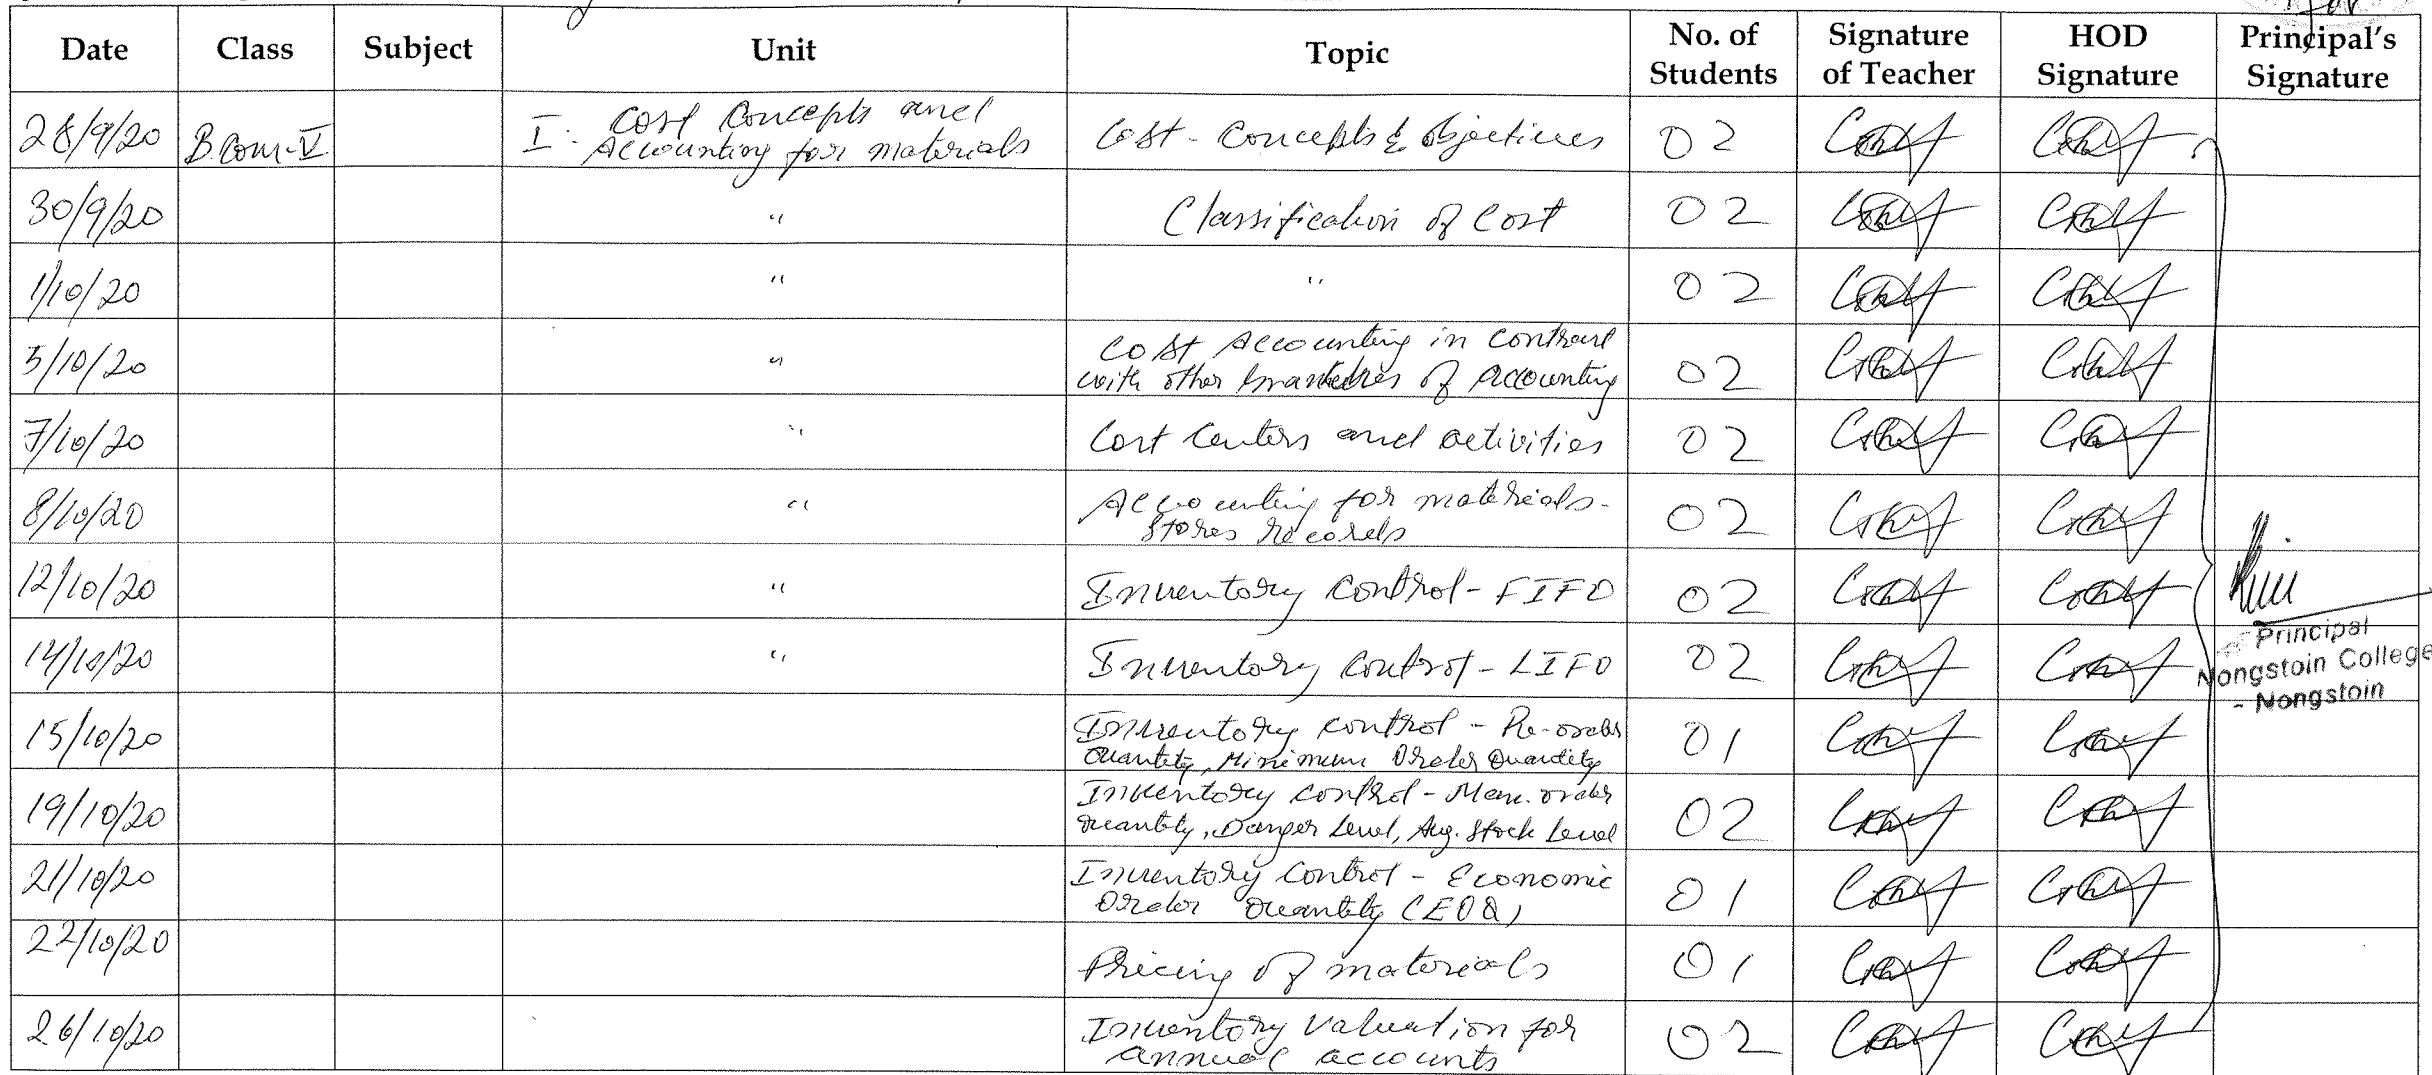 for
Date Class Subject Unit Topic No. of Students Signature of Teacher HOD Signature Principal's Signature
28/9/20 B.Com-V I. Cost Concepts and Accounting for materials Cost - Concepts & objectives 02
30/9/20 " Classification of Cost 02
1/10/20 " " 02
5/10/20 " Cost Accounting in contrast with other branches of Accounting 02
7/10/20 " Cost Centers and activities 02
8/10/20 " Accounting for materials - Stores Records 02
12/10/20 " Inventory Control - FIFO 02
14/10/20 " Inventory Control - LIFO 02
Principal
Nongstoin College
- Nongstoin
15/10/20 Inventory control - Re-order Quantity, Minimum Order Quantity 01
19/10/20 Inventory control - Max. order quantity, Danger Level, Avg. Stock Level 02
21/10/20 Inventory Control - Economic Order Quantity (EOQ) 01
22/10/20 Pricing of materials 01
26/10/20 Inventory Valuation for annual accounts 02